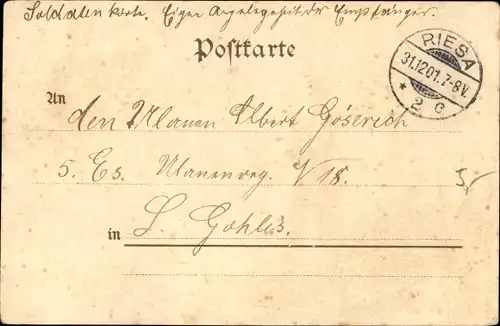 Soldatenkarte. Eigen Angelegenheit des Empfänger.
Postkarte
RIESA
31.12.01. 7-8V.
* 2 c
An den Ulanen Albert Göserich
5. Es. Ulanenreg. N 18.
5.-
in L. Gohlis.